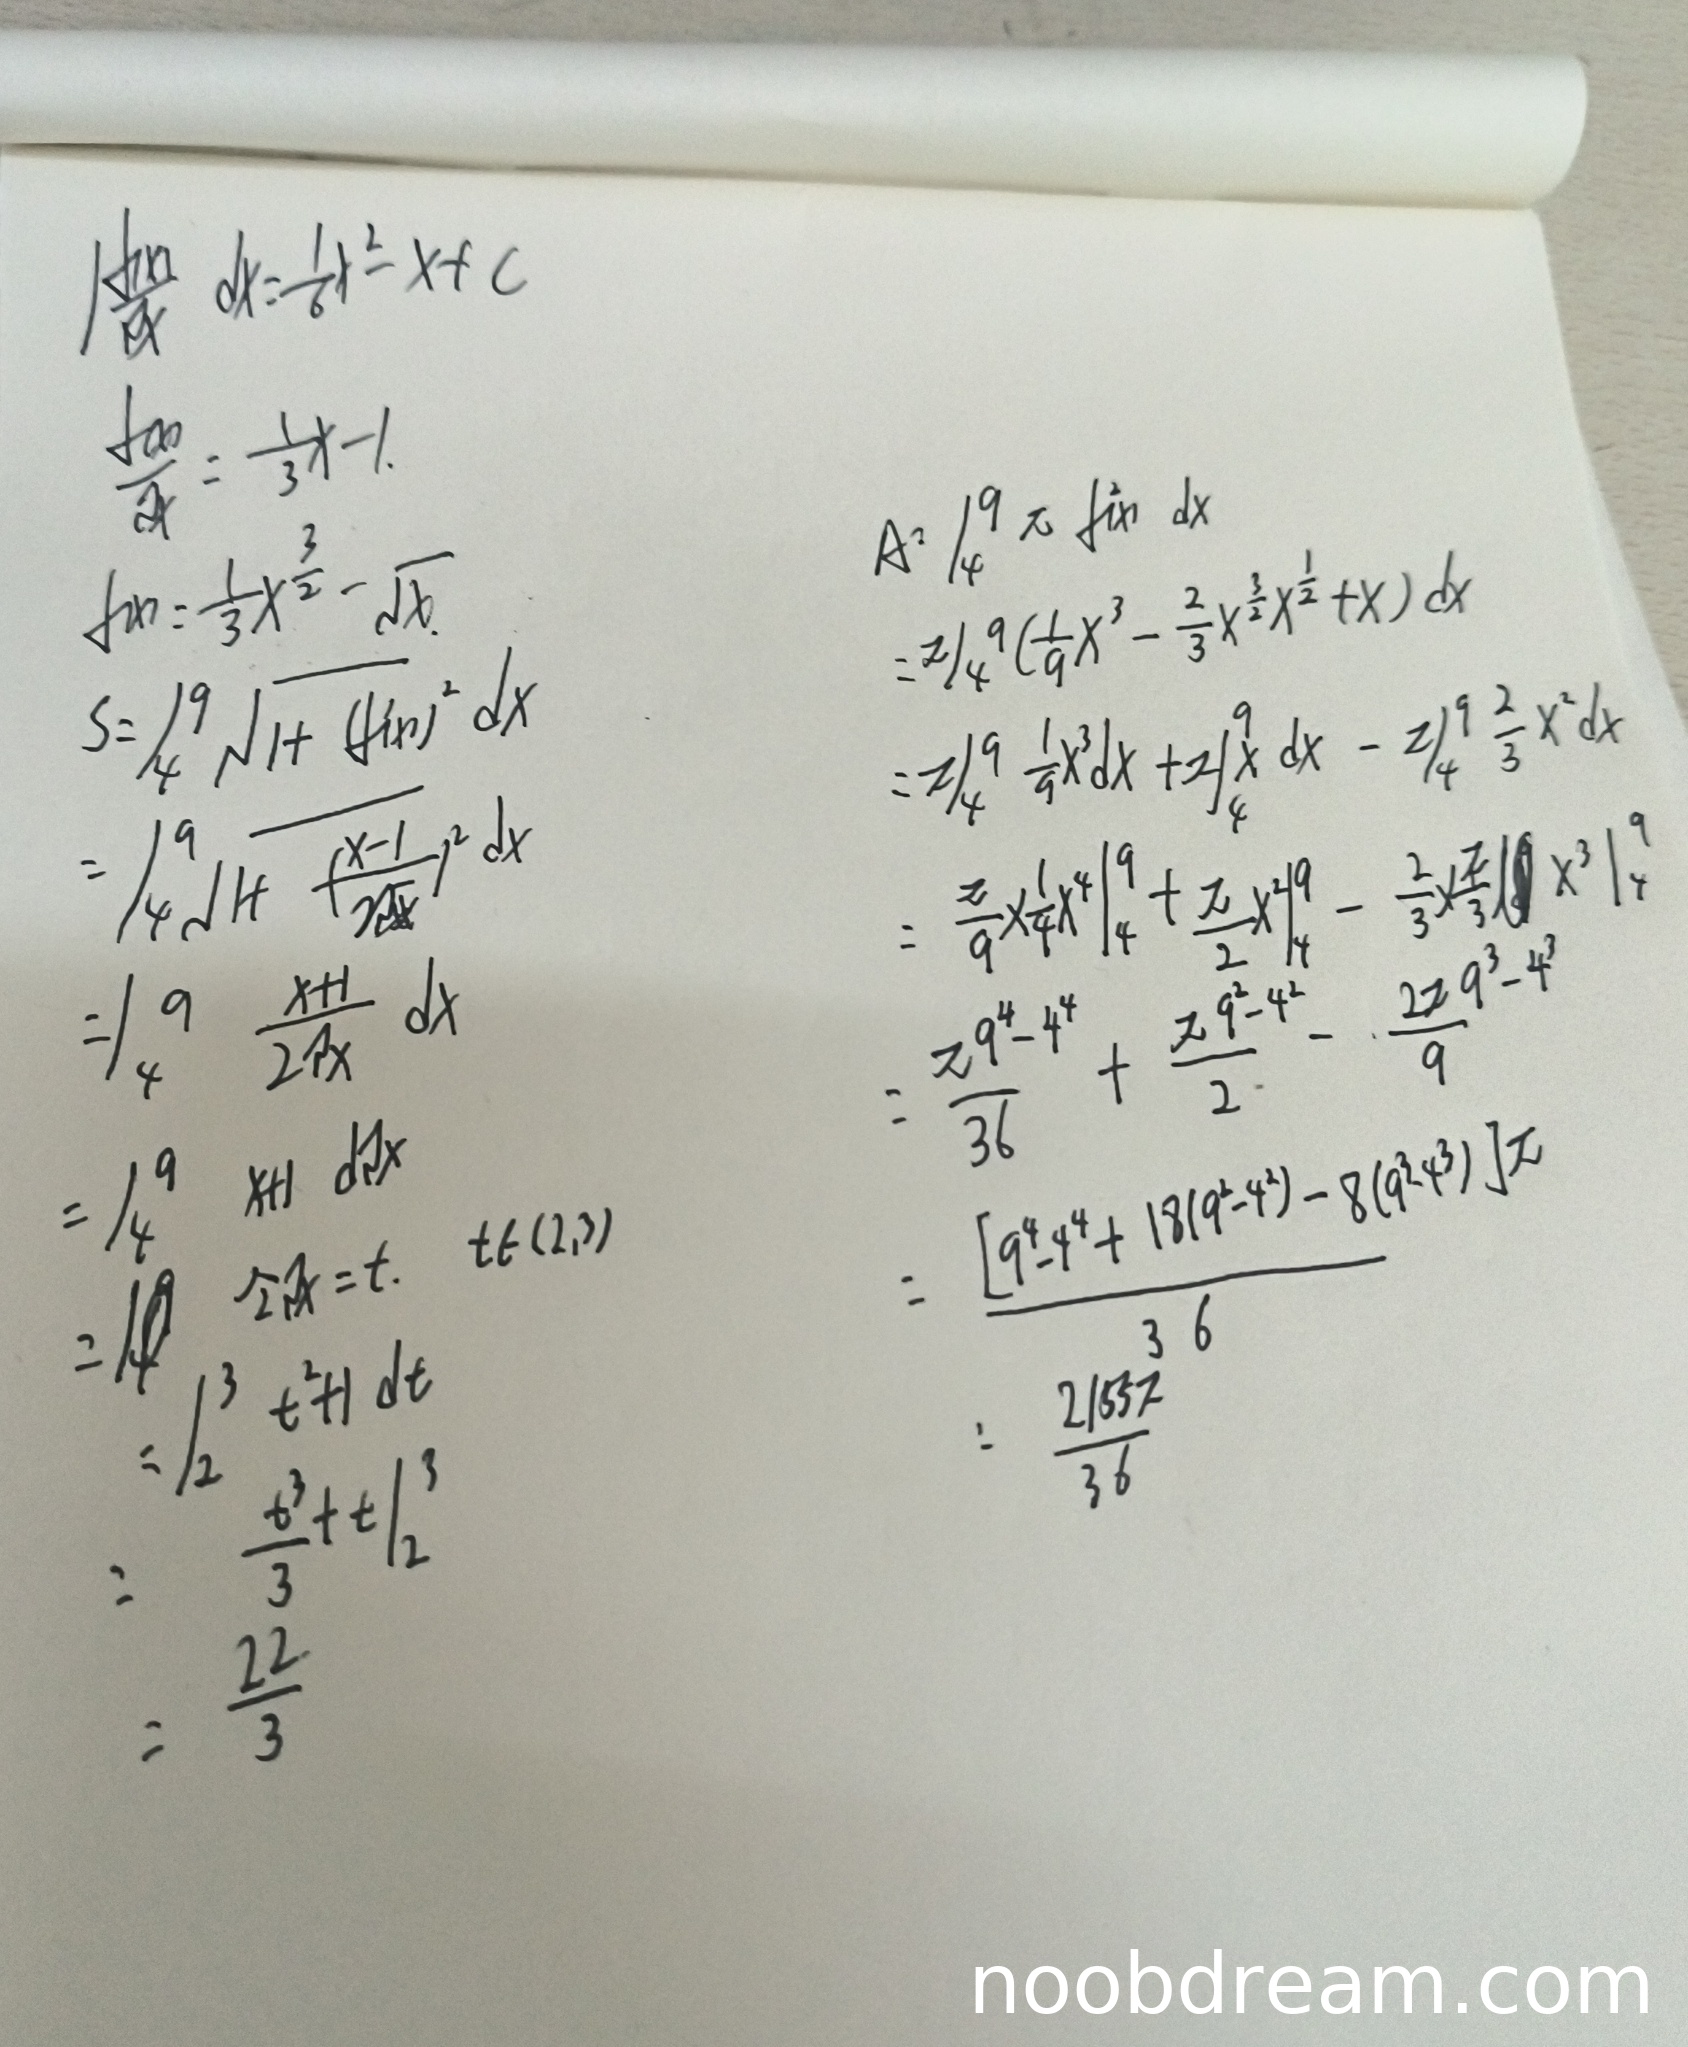 ∫ f(x)/√x dx = 1/6 x² - x + C
f(x)/√x = 1/3 x - 1.
f(x) = 1/3 x^(3/2) - √x.
S = ∫₄⁹ √(1+ (f'(x))² dx
= ∫₄⁹ √(1+ ((x-1)/(2√x))² dx
= ∫₄⁹ (x+1)/(2√x) dx
= ∫₄⁹ x+1 d√x
= 令√x = t. t∈(2,3)
= ∫₂³ t²+1 dt
= t³/3 + t |₂³
= 22/3
A = ∫₄⁹ π f²(x) dx
= π∫₄⁹ (1/9 x³ - 2/3 x^(3/2) x^(1/2) + x) dx
= π∫₄⁹ 1/9 x³ dx + π∫₄⁹ x dx - π∫₄⁹ 2/3 x² dx
= π/9 × 1/4 x⁴ |₄⁹ + π/2 x² |₄⁹ - 2/3 × π/3 x³ |₄⁹
= π 9⁴-4⁴ / 36 + π 9²-4² / 2 - 2π 9³-4³ / 9
= [9⁴-4⁴ + 18(9²-4²) - 8(9³-4³)]π / 36
= 2155π / 36
noobdream.com